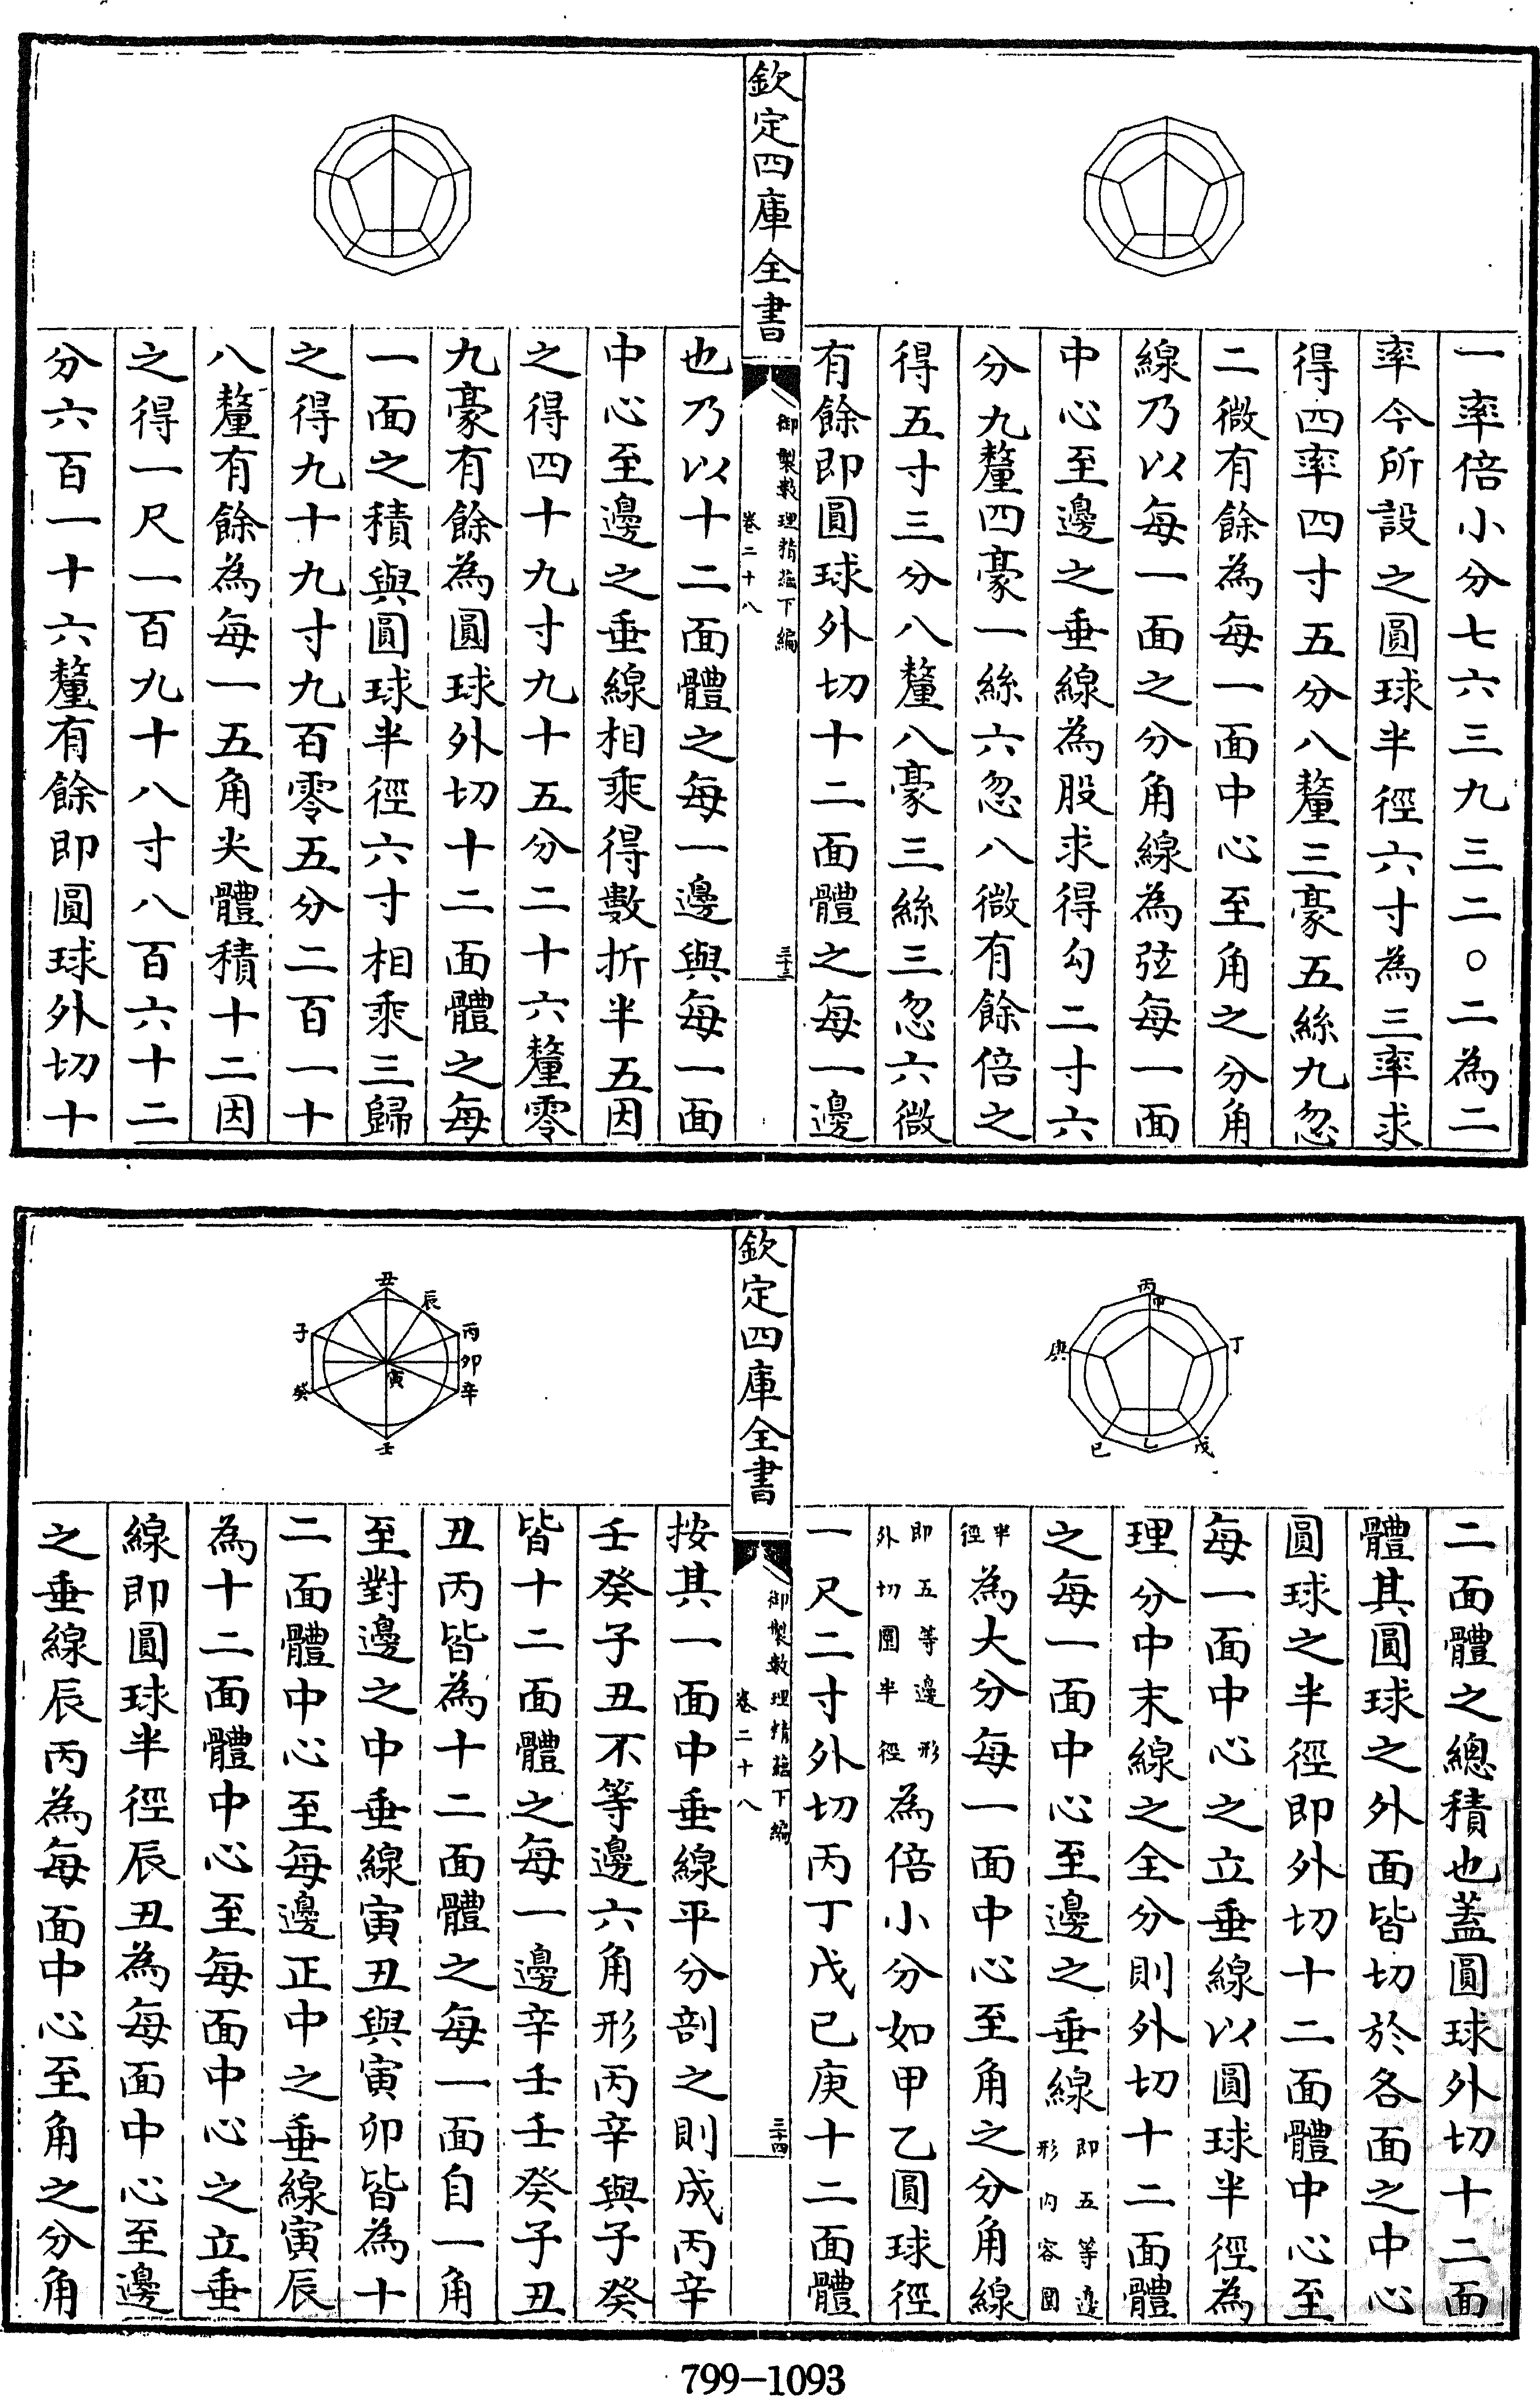 一率倍小分七六三九三二〇二為二
率今所設之圓球半徑六寸為三率求
得四率四寸五分八釐三豪五絲九忽
二微有餘為每一面中心至角之分角
線乃以每一面之分角線為弦每一面
中心至邊之垂線為股求得勾二寸六
分九釐四豪一絲六忽八微有餘倍之
得五寸三分八釐八豪三絲三忽六微
有餘即圓球外切十二面體之每一邊
欽定四庫全書
御製數理精藴下編
卷二十八
三十三
也乃以十二面體之每一邊與每一面
中心至邊之垂線相乘得數折半五因
之得四十九寸九十五分二十六釐零
九豪有餘為圓球外切十二面體之每
一面之積與圓球半徑六寸相乘三歸
之得九十九寸九百零五分二百一十
八釐有餘為每一五角尖體積十二因
之得一尺一百九十八寸八百六十二
分六百一十六釐有餘即圓球外切十
二面體之總積也蓋圓球外切十二面
體其圓球之外面皆切於各面之中心
圓球之半徑即外切十二面體中心至
每一面中心之立垂線以圓球半徑為
理分中末線之全分則外切十二面體
之每一面中心至邊之垂線即五等邊形内容圜
半徑為大分每一面中心至角之分角線
即五等邊形外切圜半徑為倍小分如甲乙圓球徑
一尺二寸外切丙丁戊己庚十二面體
丙
甲
丁
戊
乙
己
庚
欽定四庫全書
御製數理精藴下編
卷二十八
三十四
按其一面中垂線平分剖之則成丙辛
壬癸子丑不等邊六角形丙辛與子癸
皆十二面體之每一邊辛壬壬癸子丑
丑丙皆為十二面體之每一面自一角
至對邊之中垂線寅丑與寅卯皆為十
二面體中心至每邊正中之垂線寅辰
為十二面體中心至每面中心之立垂
線即圓球半徑辰丑為每面中心至邊
之垂線辰丙為每面中心至角之分角
丑
辰
丙
卯
辛
寅
壬
癸
子
799-1093